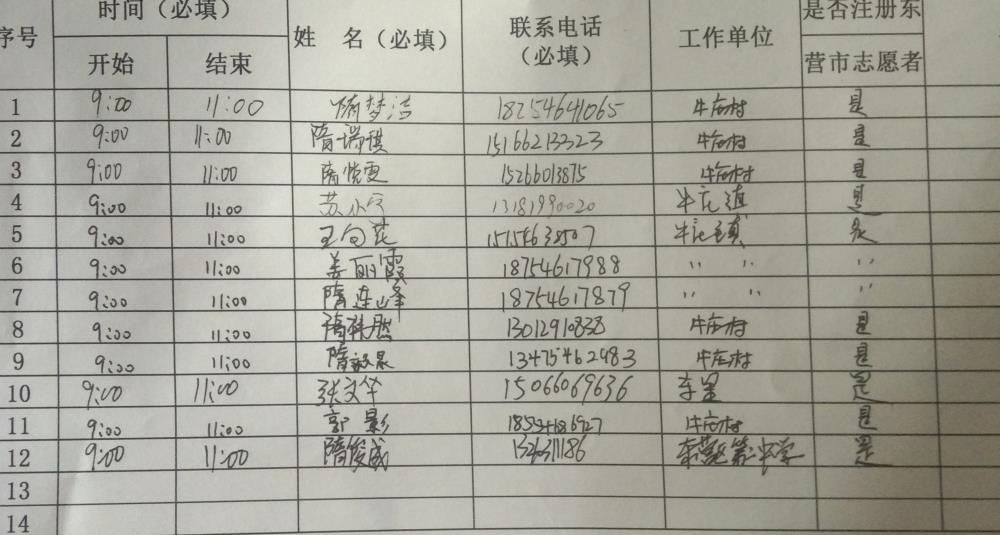 序号 时间（必填） 姓 名（必填） 联系电话（必填） 工作单位 是否注册东营市志愿者
开始 结束
1 9:00 11:00 隋梦洁 18254641065 牛庄村 是
2 9:00 11:00 隋瑞琪 15166213323 牛庄村 是
3 9:00 11:00 隋悦雯 15266013875 牛庄村 是
4 9:00 11:00 苏小 13181990020 牛庄镇 是
5 9:00 11:00 王向花 牛庄镇 是
6 9:00 11:00 姜丽霞 18754617988 〃 〃 〃
7 9:00 11:00 隋连峰 18754617879 〃 〃 〃
8 9:00 11:00 隋 然 13012910838 牛庄村 是
9 9:00 11:00 隋 13475462983 牛庄村 是
10 9:00 11:00 张文华 15066069636 是
11 9:00 11:00 郭影 牛庄村 是
12 9:00 11:00 隋俊威 是
13
14